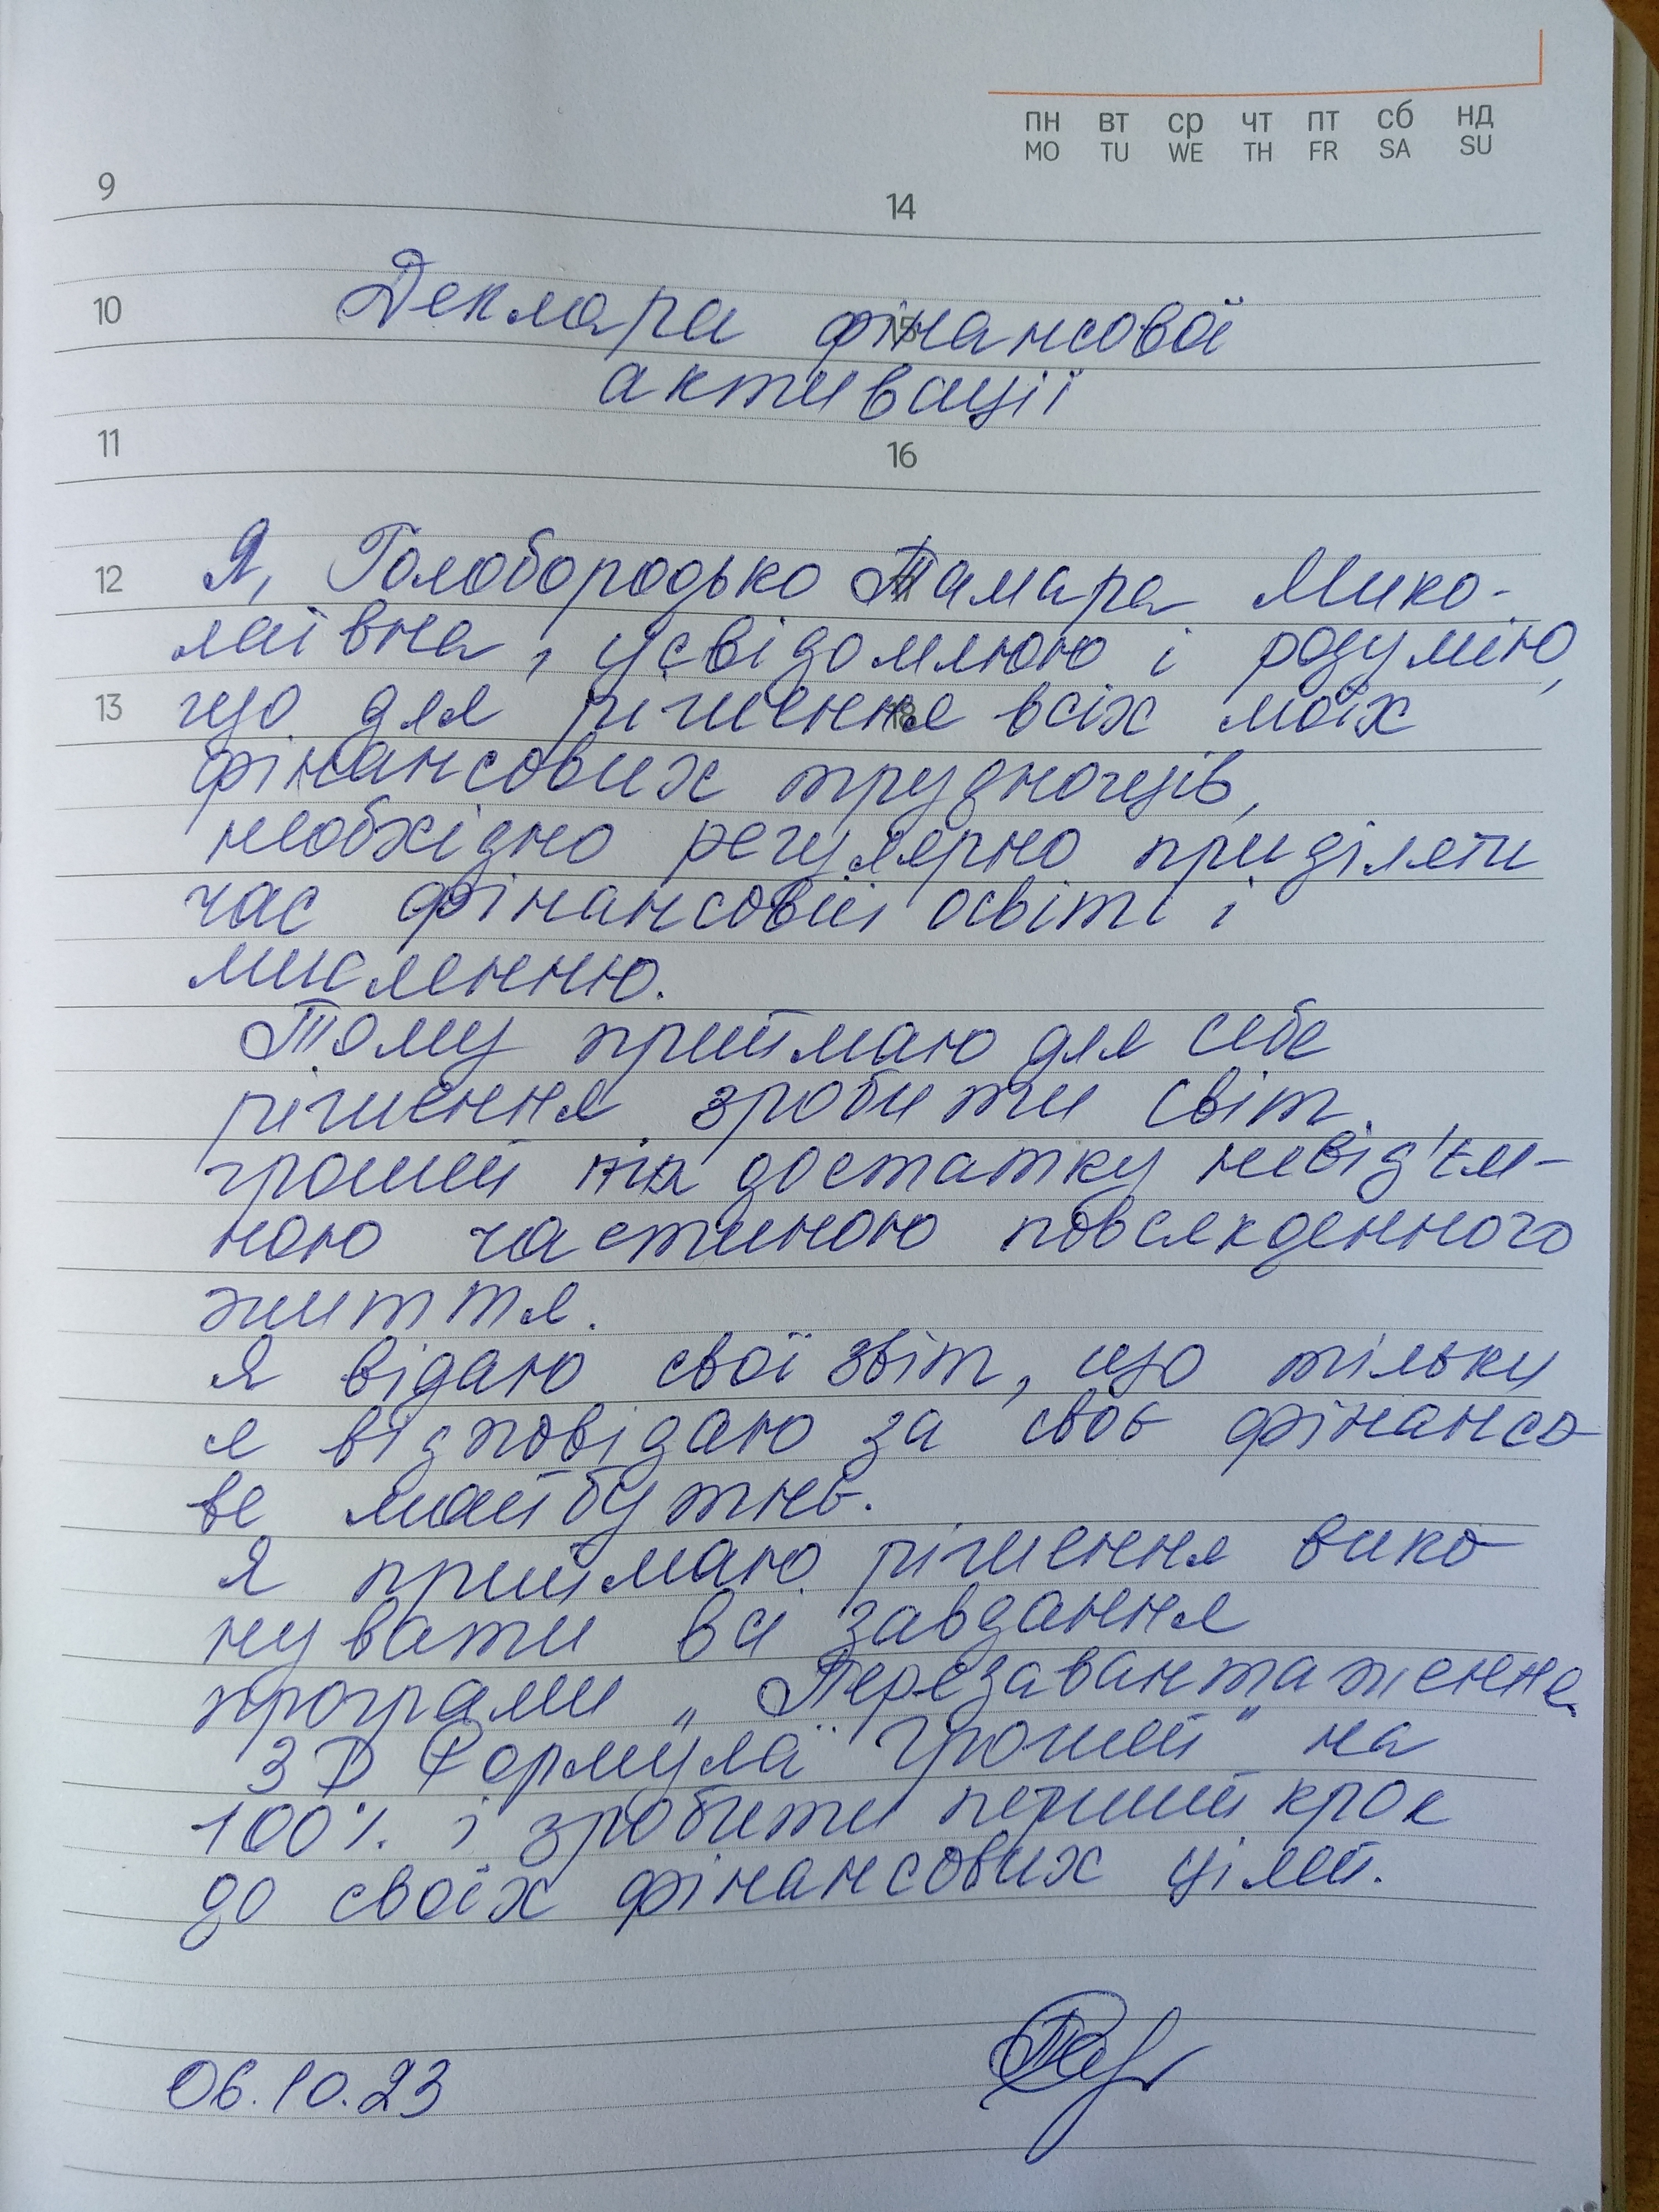 ПН ВТ СР ЧТ ПТ СБ НД
MO TU WE TH FR SA SU
9 14
10 15
Деклара фінансової
активації
11 16
12 Я, Голобородько Тамара Мико-
лаївна, усвідомлюю і розумію,
13 18 що для рішення всіх моїх
фінансових труднощів,
необхідно регулярно приділяти
час фінансовій освіті і
мисленню.
Тому приймаю для себе
рішення зробити світ
грошей та достатку невід'єм-
ною частиною повсякденного
життя.
Я відаю свої звіт, що тільки
я відповідаю за своє фінансо-
ве майбутнє.
Я приймаю рішення вико-
нувати всі завдання
програми „Перезавантаження
3D Формула грошей" на
100% і зробити перший крок
до своїх фінансових цілей.
06.10.23